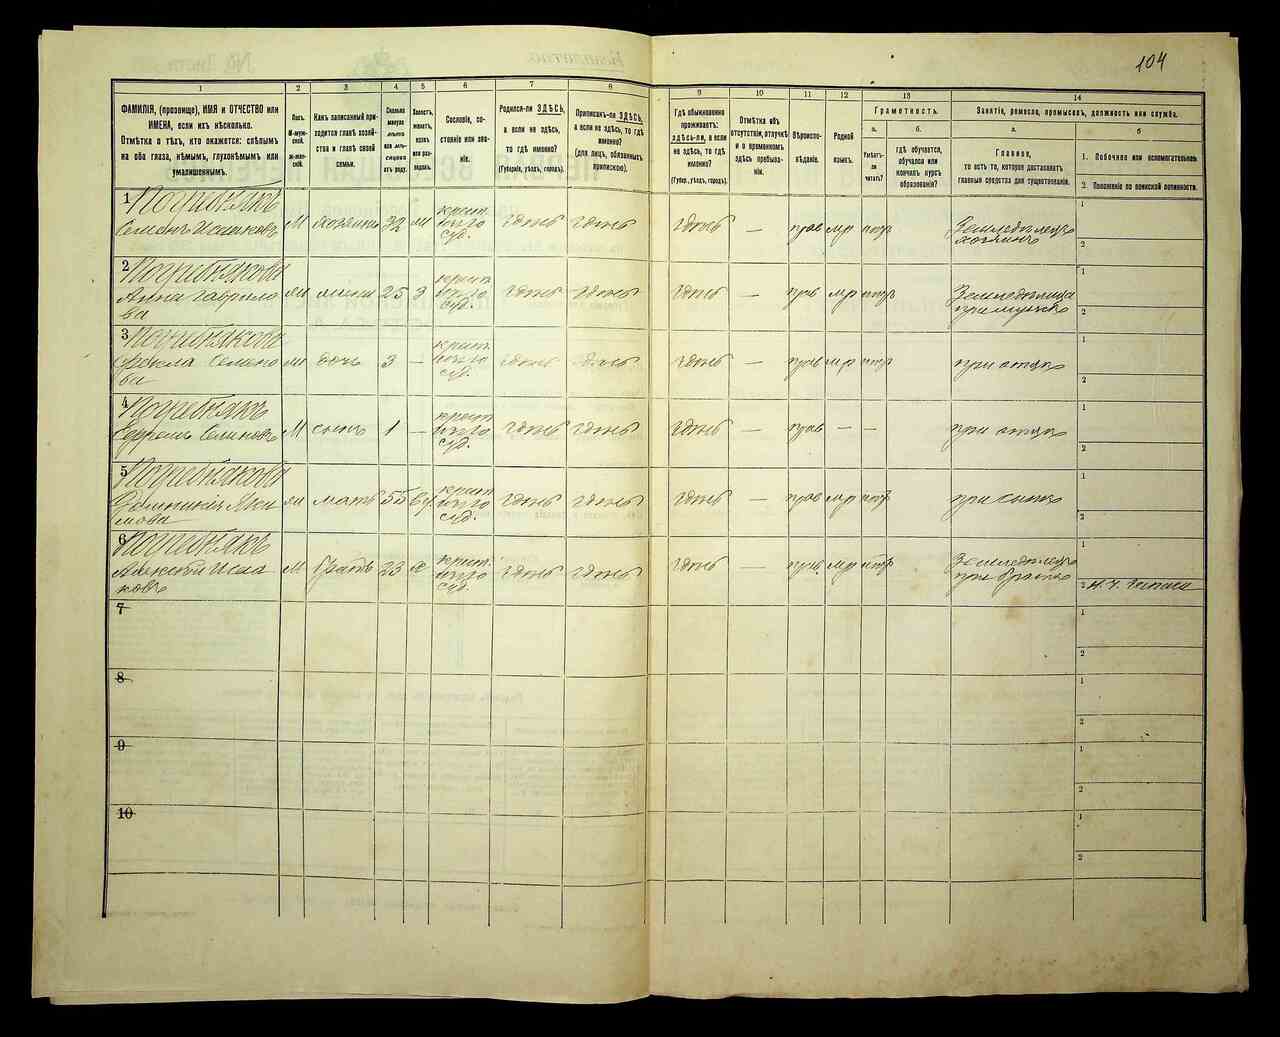 104
1
2
3
4
5
6
7
8
9
10
11
12
13
14
ФАМИЛІЯ, (прозвище), ИМЯ и ОТЧЕСТВО или
ИМЕНА, если ихъ нѣсколько.
Отмѣтка о тѣхъ, кто окажется: слѣпымъ
на оба глаза, нѣмымъ, глухонѣмымъ или
умалишеннымъ.
Полъ.
М-муж-
ской.
ж-жен-
скій.
Какъ записанный при-
ходится главѣ хозяй-
ства и главѣ своей
семьи.
Сколько
минуло
лѣтъ
или мѣ-
сяцевъ
отъ роду.
Холостъ,
женатъ,
вдовъ
или раз-
веденъ.
Сословіе, со-
стояніе или зва-
ніе.
Родился-ли ЗДѢСЬ,
а если не здѣсь,
то гдѣ именно?
(Губернія, уѣздъ, городъ).
Приписанъ-ли ЗДѢСЬ,
а если не здѣсь, то гдѣ
именно?
(для лицъ, обязанныхъ
припискою).
Гдѣ обыкновенно
проживаетъ:
здѣсь-ли, а если
не здѣсь, то гдѣ
именно?
(Губер., уѣздъ, городъ).
Отмѣтка объ
отсутствіи, отлучкѣ
и о временномъ
здѣсь пребыва-
ніи.
Вѣроиспо-
вѣданіе.
Родной
языкъ.
Грамотность.
а.
Умѣетъ-
ли
читать?
б.
гдѣ обучается,
обучался или
кончилъ курсъ
образованія?
Занятіе, ремесло, промыселъ, должность или служба.
а.
Главное,
то есть то, которое доставляетъ
главныя средства для существованія.
б
1. Побочное или вспомогательное.
2. Положеніе по воинской повинности.
1 Погребнякъ
Семенъ Исааковъ М хозяинъ 32 ж здѣсь здѣсь здѣсь — прав мр Земледѣлецъ
хозяинъ
2 Погребнякова
Анна Гаврило
ва ж жена 25 з здѣсь здѣсь здѣсь — прав мр
при мужѣ
3 Погребнякова
Семено
ва ж дочь 3 — здѣсь здѣсь здѣсь — прав мр при отцѣ
4 Погребнякъ
Ефремъ Семеновъ М сынъ 1 — здѣсь здѣсь здѣсь — прав — — при отцѣ
5 Погребнякова
ж мать 55 здѣсь здѣсь здѣсь — прав мр при сынѣ
6 Погребнякъ
Алексѣй Исаа
ковъ М братъ 23 х здѣсь здѣсь здѣсь — прав мр Земледѣлецъ
при братѣ
7
8
9
10